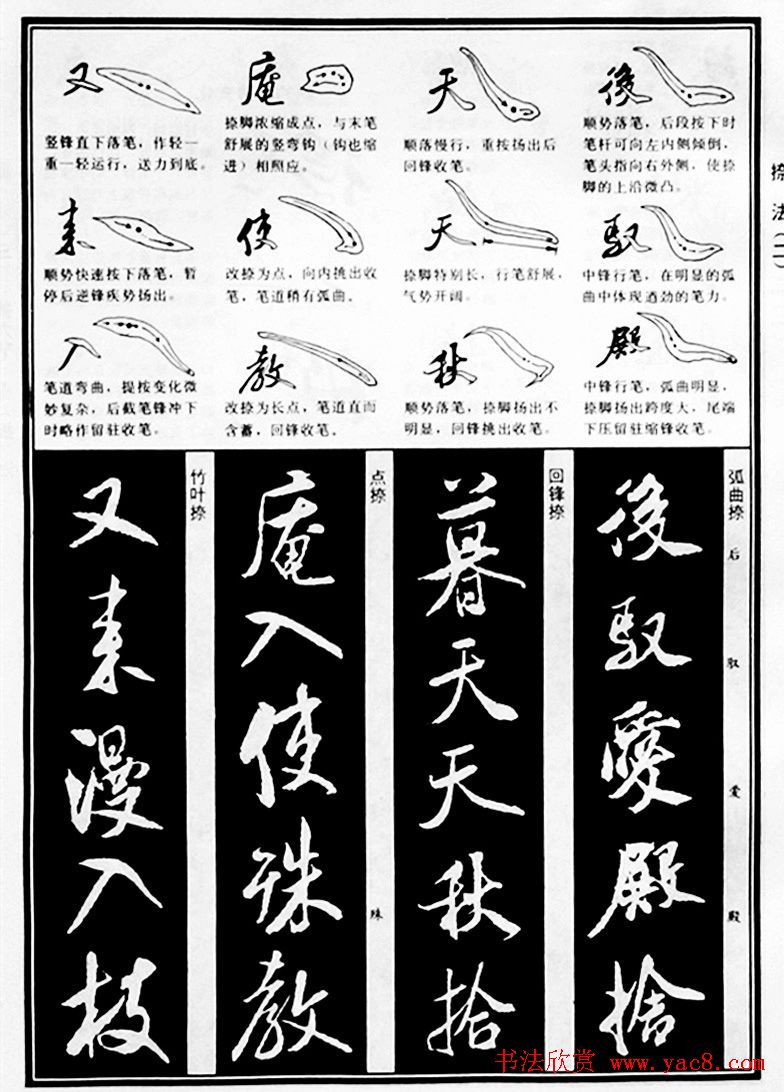 捺法(二)
後
顺势落笔，后段按下时
笔杆可向左内侧倾倒，
笔头指向右外侧，使捺
脚的上沿微凸。
馭
中锋行笔，在明显的弧
曲中体现遒劲的笔力。
殿
中锋行笔，弧曲明显，
捺脚扬出跨度大，尾端
下压留驻缩锋收笔。
天
顺落慢行，重按扬出后
回锋收笔。
天
捺脚特别长，行笔舒展，
气势开阔。
秋
顺势落笔，捺脚扬出不
明显，回锋挑出收笔。
庵
捺脚浓缩成点，与末笔
舒展的竖弯钩（钩也缩
进）相照应。
使
改捺为点，向内挑出收
笔，笔道稍有弧曲。
教
改捺为长点，笔道直而
含蓄，回锋收笔。
又
竖锋直下落笔，作轻一
重一轻运行，送力到底。
来
顺势快速按下落笔，暂
停后逆锋疾势扬出。
入
笔道弯曲，提按变化微
妙复杂，后截笔锋冲下
时略作留驻收笔。
弧曲捺
后
驭
爱
殿
後馭愛殿捨
回锋捺
暮天天秋拾
点捺
殊
庵入使殊教
竹叶捺
又来漫入枝
书法欣赏 www.yac8.com